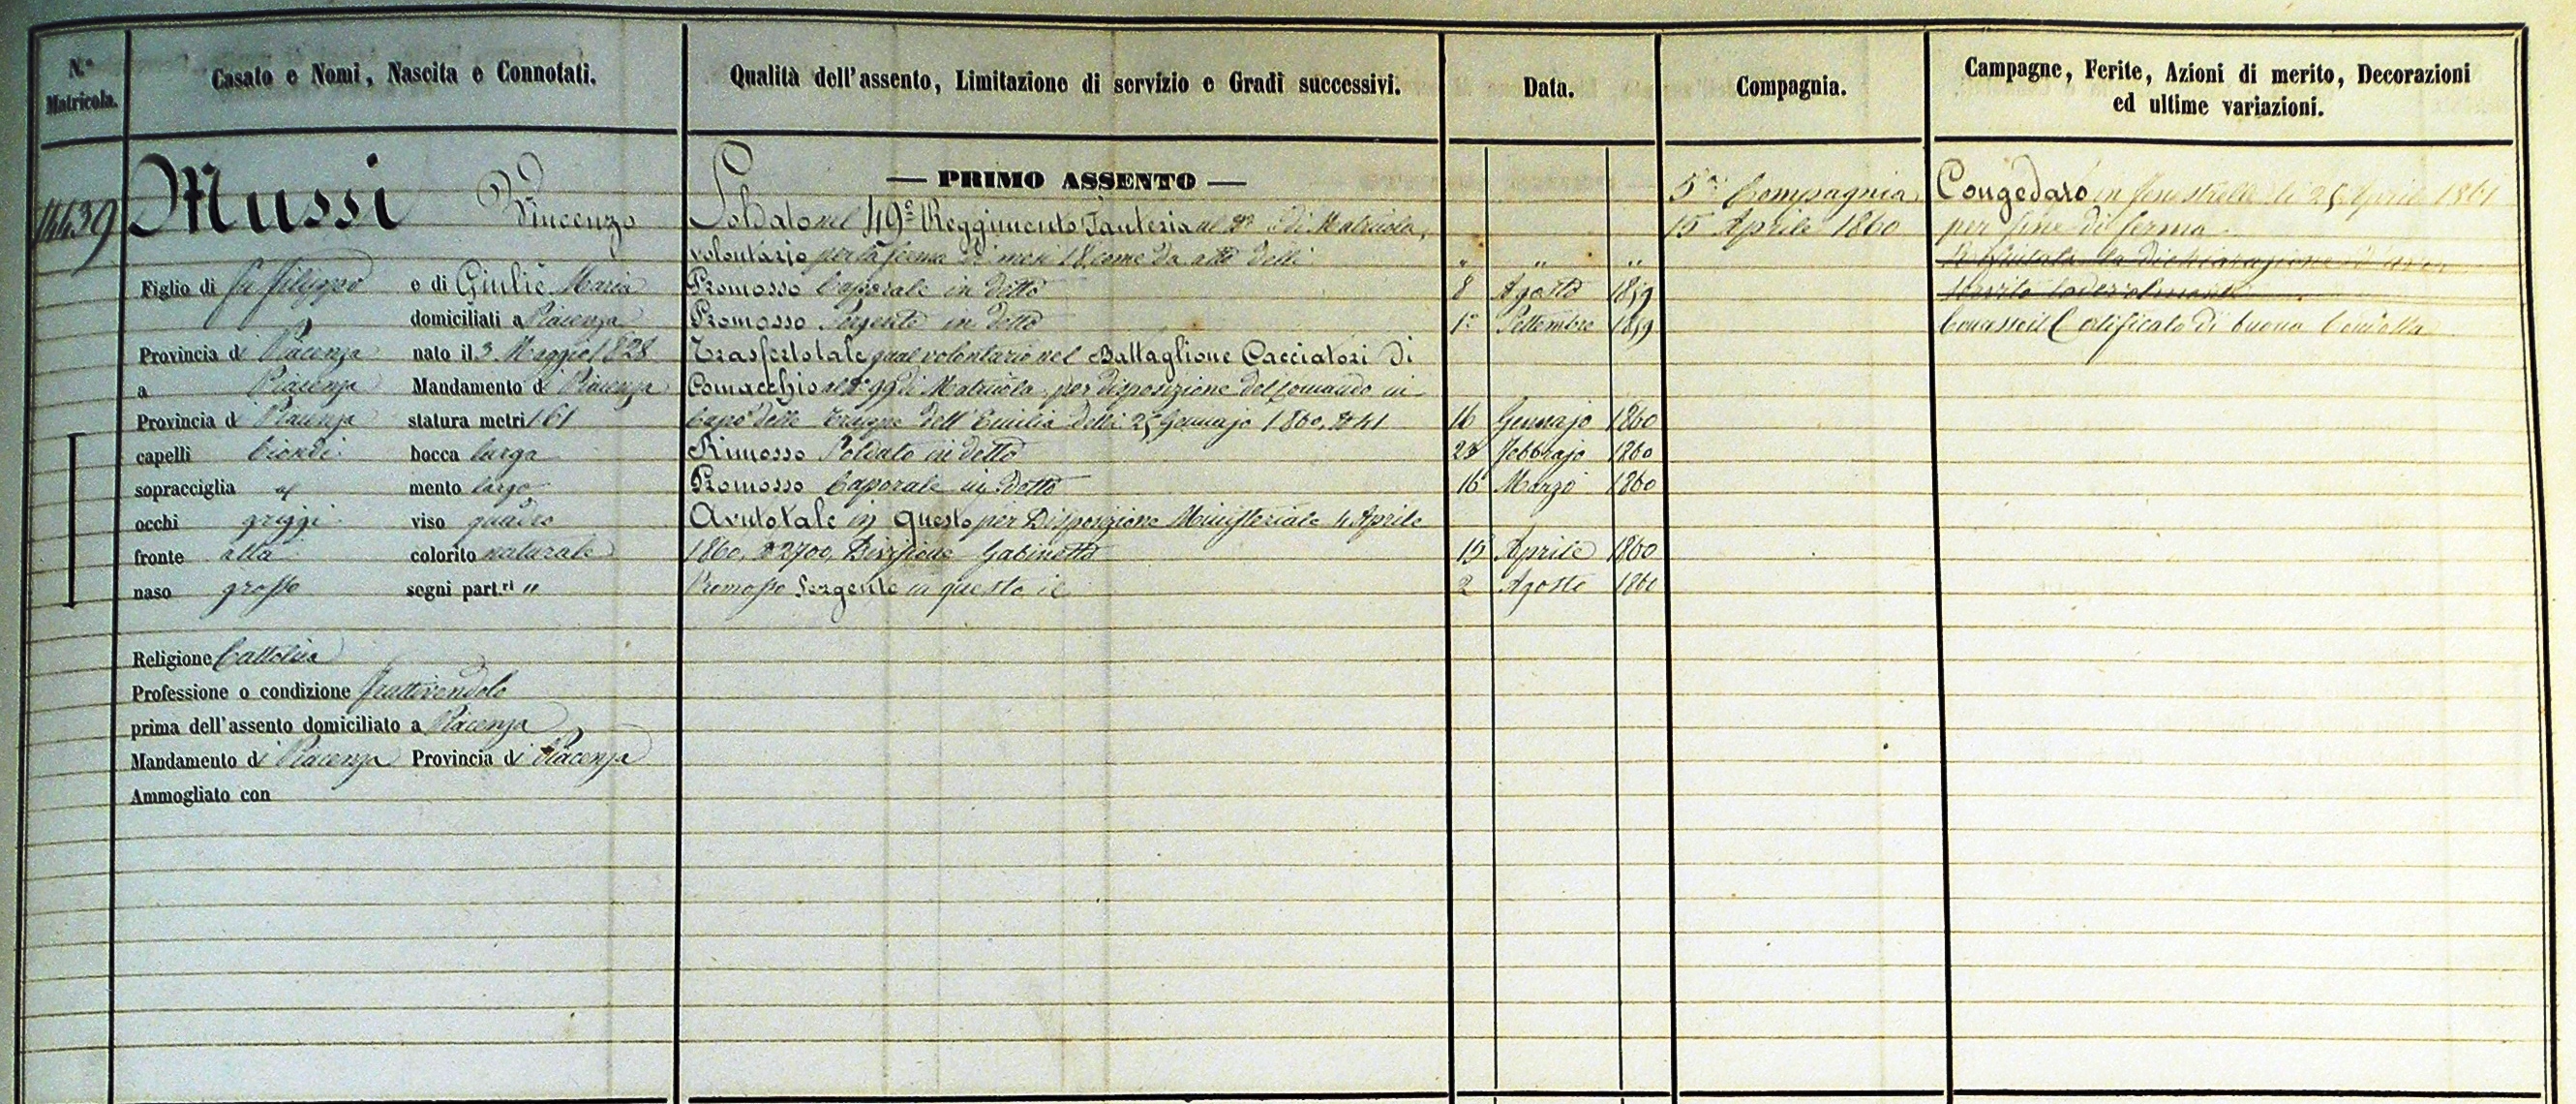 N.º Matricola.
Casato e Nomi, Nascita e Connotati.
Qualità dell'assento, Limitazione di servizio e Gradi successivi.
Data.
Compagnia.
Campagne, Ferite, Azioni di merito, Decorazioni
ed ultime variazioni.
14439
Mussi Vincenzo
Figlio di fu Filippo e di Giulie Maria
domiciliati a Piacenza
Provincia di Piacenza nato il 3 Maggio 1828
a Piacenza Mandamento di Piacenza
Provincia di Piacenza statura metri 1 61
capelli biondi bocca larga
sopracciglia mento largo
occhi griggi viso quadro
fronte alta colorito naturale
naso grosso segni part.ri "
Religione Cattolica
Professione o condizione fruttivendolo
prima dell'assento domiciliato a Piacenza
Mandamento di Piacenza Provincia di Piacenza
Ammogliato con
— PRIMO ASSENTO —
Soldato nel 49º Reggimento Fanteria al Nº di Matricola,
volontario per la ferma di mesi 18 come da atto delli " " "
Promosso Caporale in detto 8 Agosto 1859
Promosso Sergente in detto 1º Settembre 1859
Trasferto tale qual volontario nel Battaglione Cacciatori di
Comacchio al Nº 99 di Matricola per disposizione del Comando in
Capo delle Truppe dell'Emilia delli 25 Gennajo 1860, Nº 41 16 Gennajo 1860
Rimosso Soldato in detto Febbrajo 1860
Promosso Caporale in detto 16 Marzo 1860
Avuto tale in questo per Disposizione Ministeriale 4 Aprile
1860, Nº 2700, Divisione Gabinetto 15 Aprile 1860
Promosso Sergente in questo il 2 Agosto 1860
5ª Compagnia
15 Aprile 1860
Congedato in Fenestrelle li 25 Aprile 1861
per fine di ferma
la dichiarazione d'aver
servito
Concessoli Certificato di buona Condotta